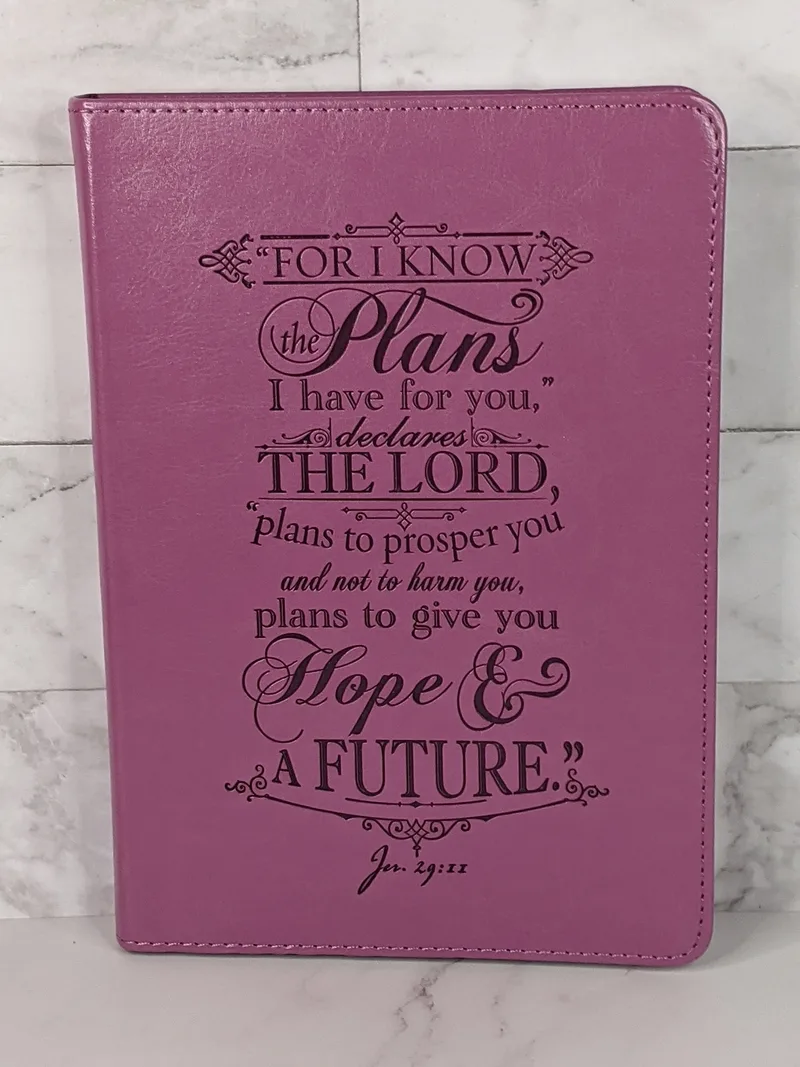 “FOR I KNOW
the Plans
I have for you,”
declares
THE LORD,
“plans to prosper you
and not to harm you,
plans to give you
Hope &
A FUTURE.”
Jer. 29:11